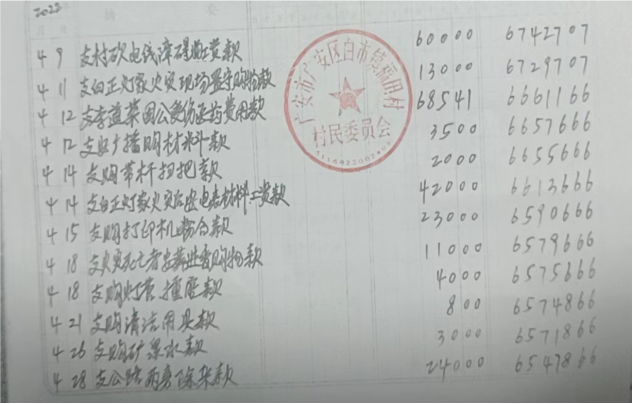 2022
4 9 支村砍电线障碍工资款 60000 6742707
4 11 支白正灯家火灾现场 购物款 13000 6729707
4 12 支李益菜因公受伤医药费用款 68541 6661166
4 12 支 广播购材料款 3500 6657666
4 14 支购草杆扫把款 2000 6655666
4 14 支白正灯家火灾后 电表材料工资款 42000 6613666
4 15 支购打印机 粉合款 23000 6590666
4 18 支火灾死亡者安葬 购物款 11000 6579666
4 18 支购灯管 插座款 4000 6575666
4 21 支购清洁用具款 800 6574866
4 26 支购矿泉水款 3000 6571866
4 28 支公路两旁除杂款 24000 6547866
广安市广安区白市镇 田村
村民委员会